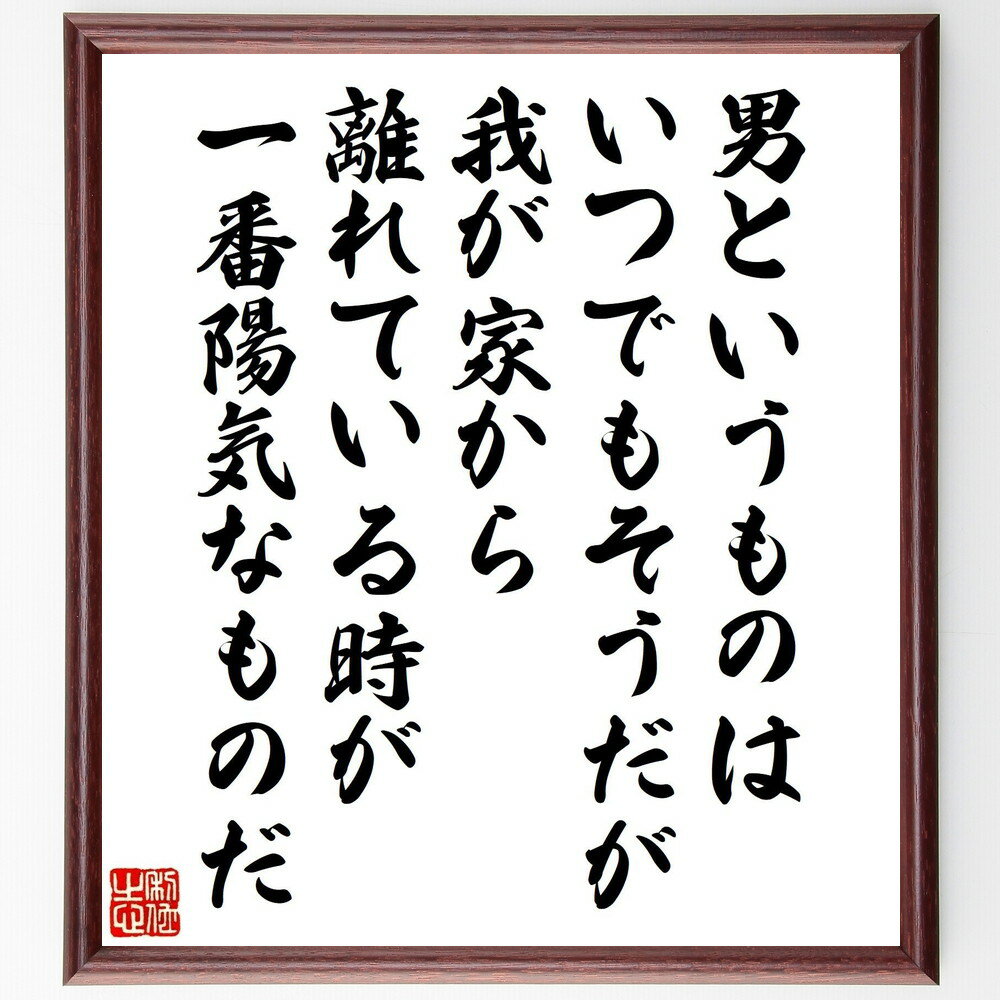 男というものは
いつでもそうだが
我が家から
離れている時が
一番陽気なものだ